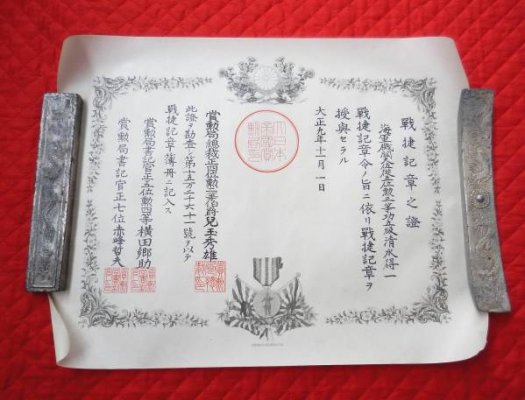 戰捷記章之證
海軍機關 佐從五位勲三等功五級清水得一
戰捷記章令ノ旨ニ依リ戰捷記章ヲ
授與セラル
大正九年十一月一日
大日本
帝國賞
勲局印
賞勲局總裁正四位勲二等伯爵兒玉秀雄
此證ヲ勘査シ第十五万二千六十一號ヲ以テ
戰捷記章簿册ニ記入ス
賞勲局書記官正五位勲四等横田郷助
賞勲局書記官正七位赤峰